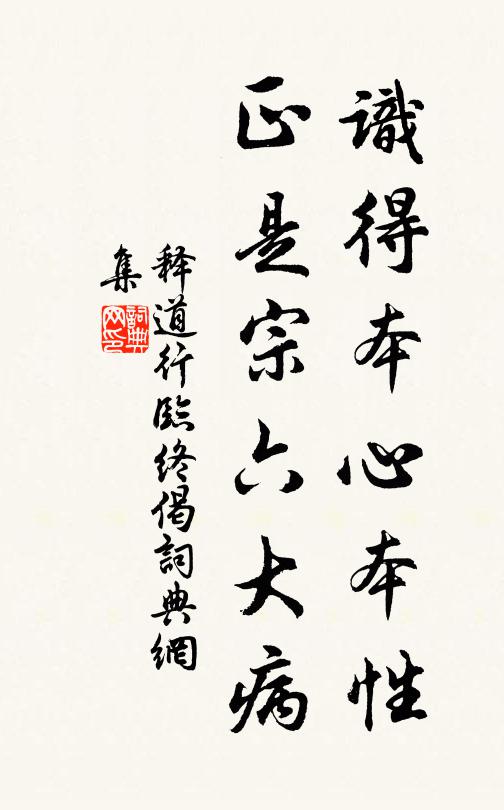 識得本心本性
正是宗六大病
释道行臨终偈詞典網
集
詞典
网印